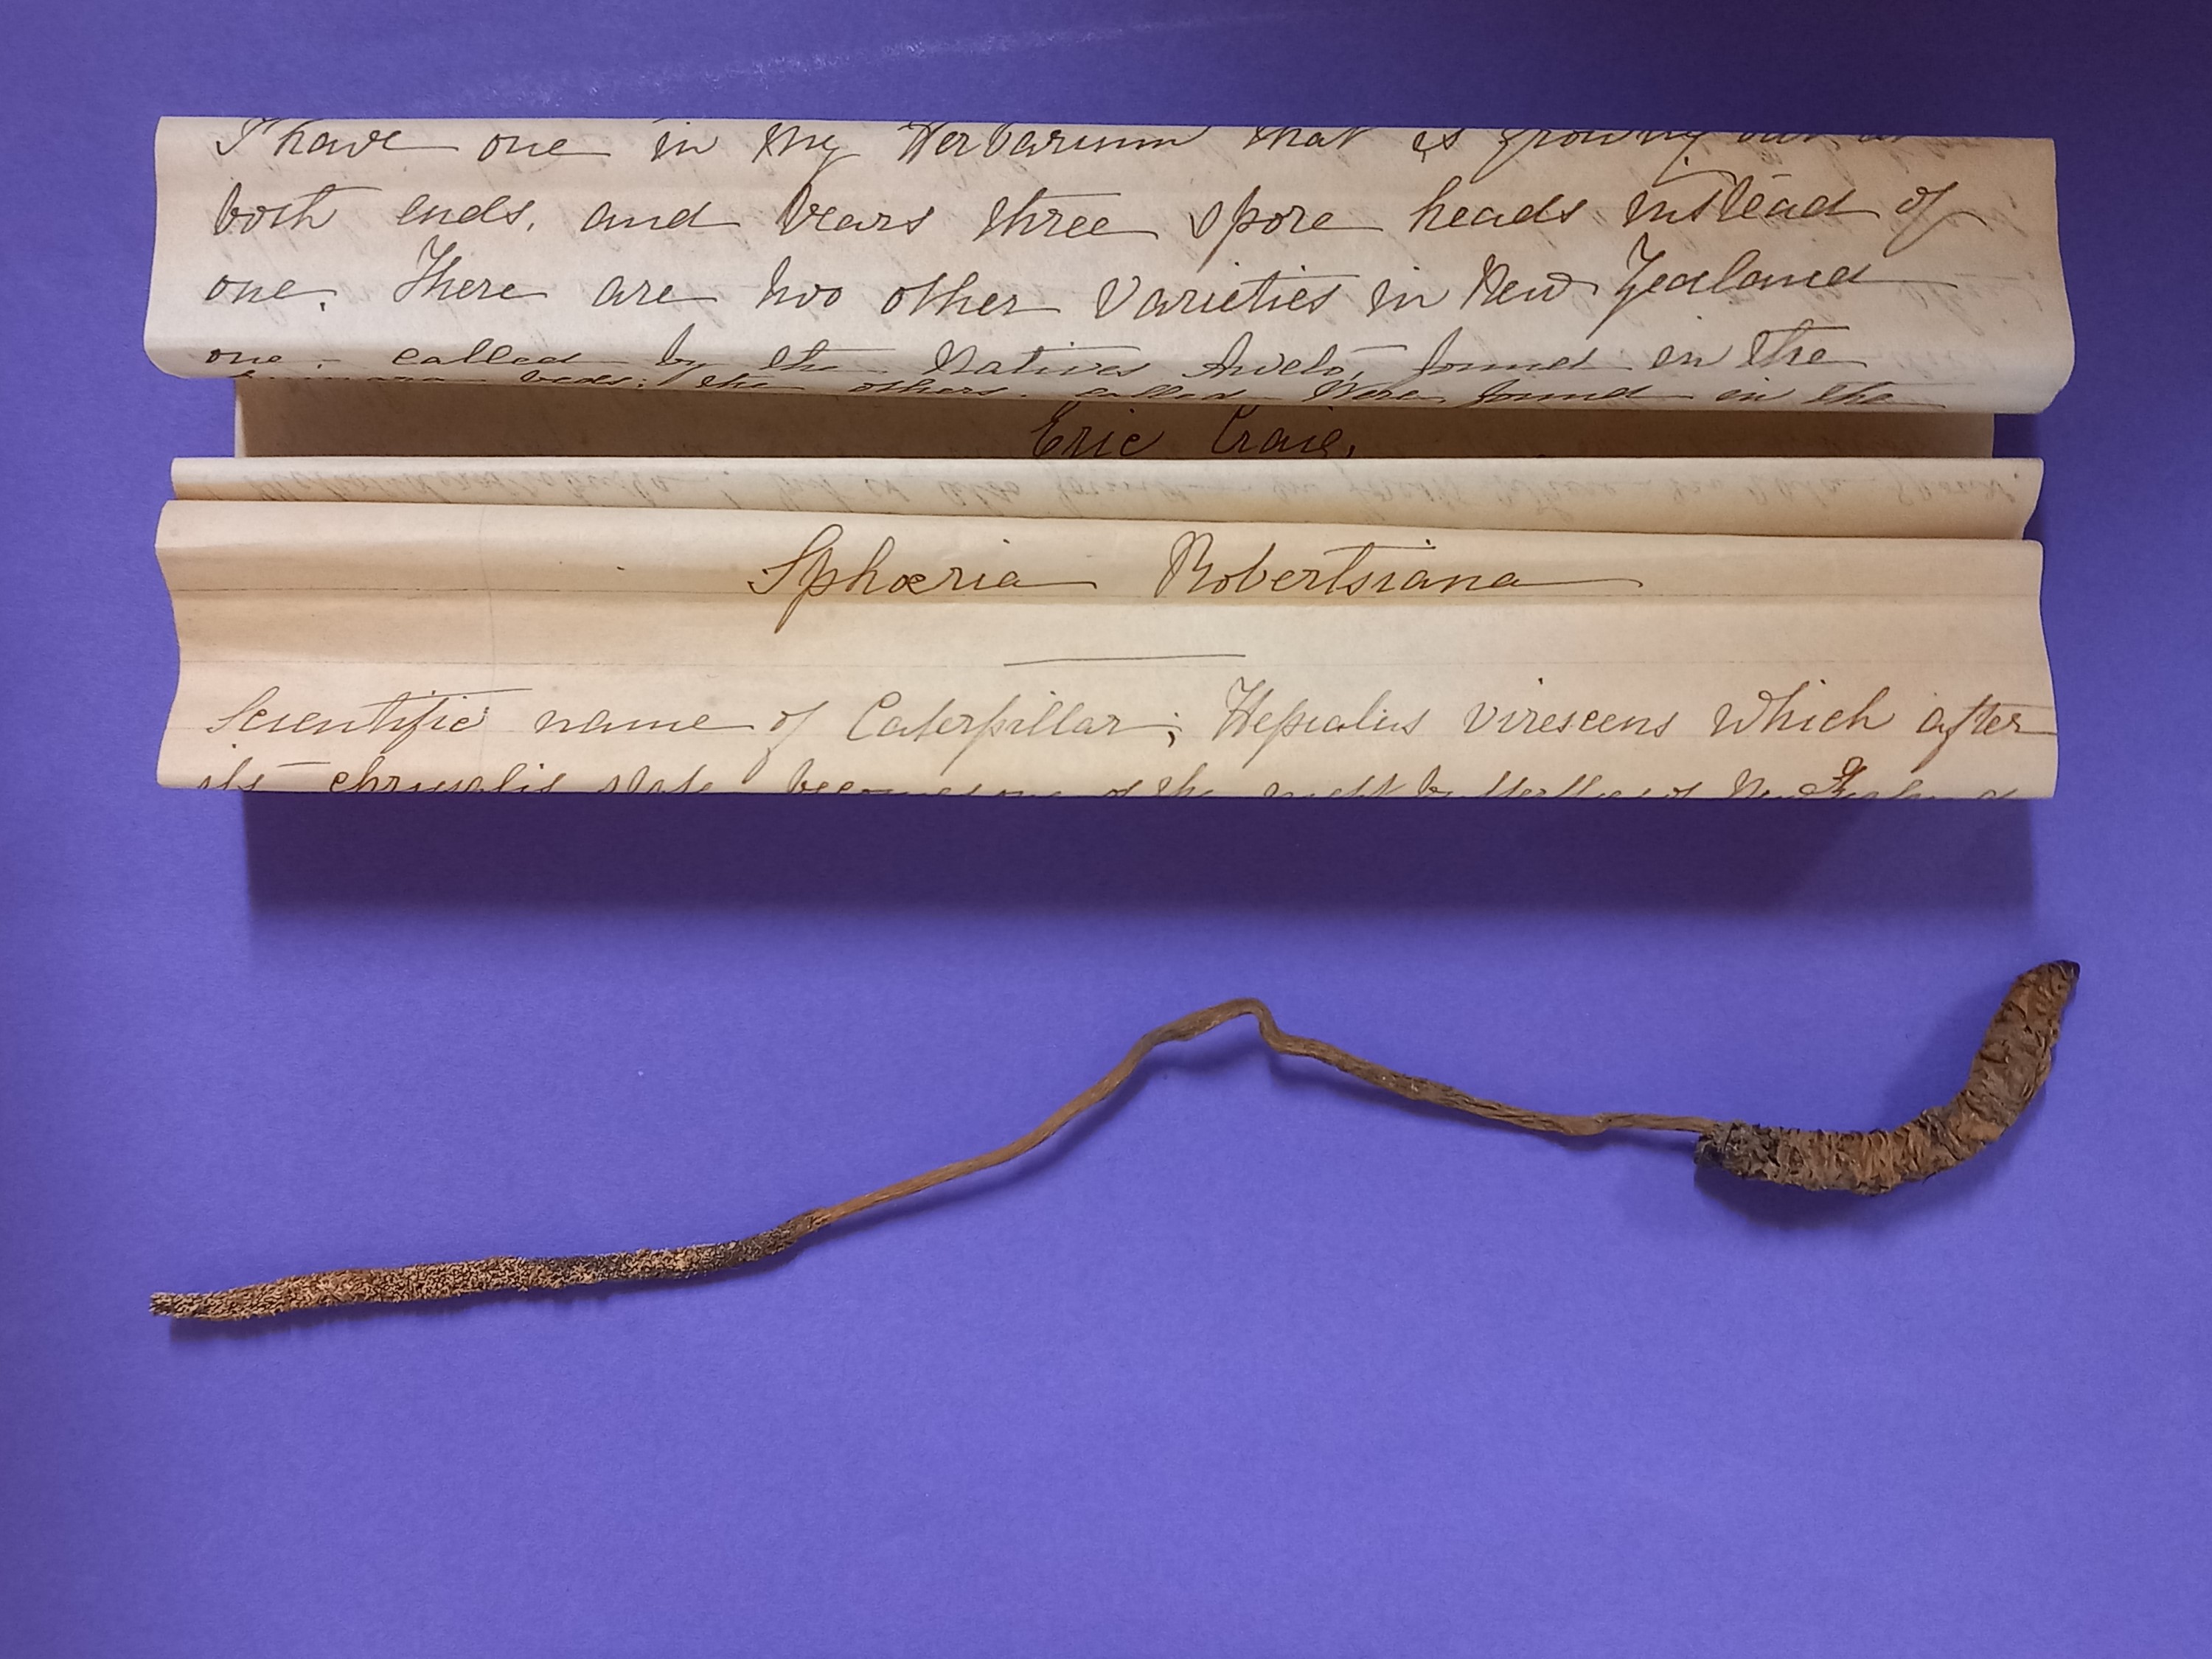 I have one in my Herbarium that is growing out at
both ends, and bears three spore heads instead of
one. There are two other varieties in New Zealand
one - called by the Natives Aweto, found in the
beds; the others, called found in the
Eric Craig.
Sphæria Robertsiana
Scientific name of Caterpillar; Hepialus virescens which after
its chrysalis state becomes one of the butterflies of New Zealand